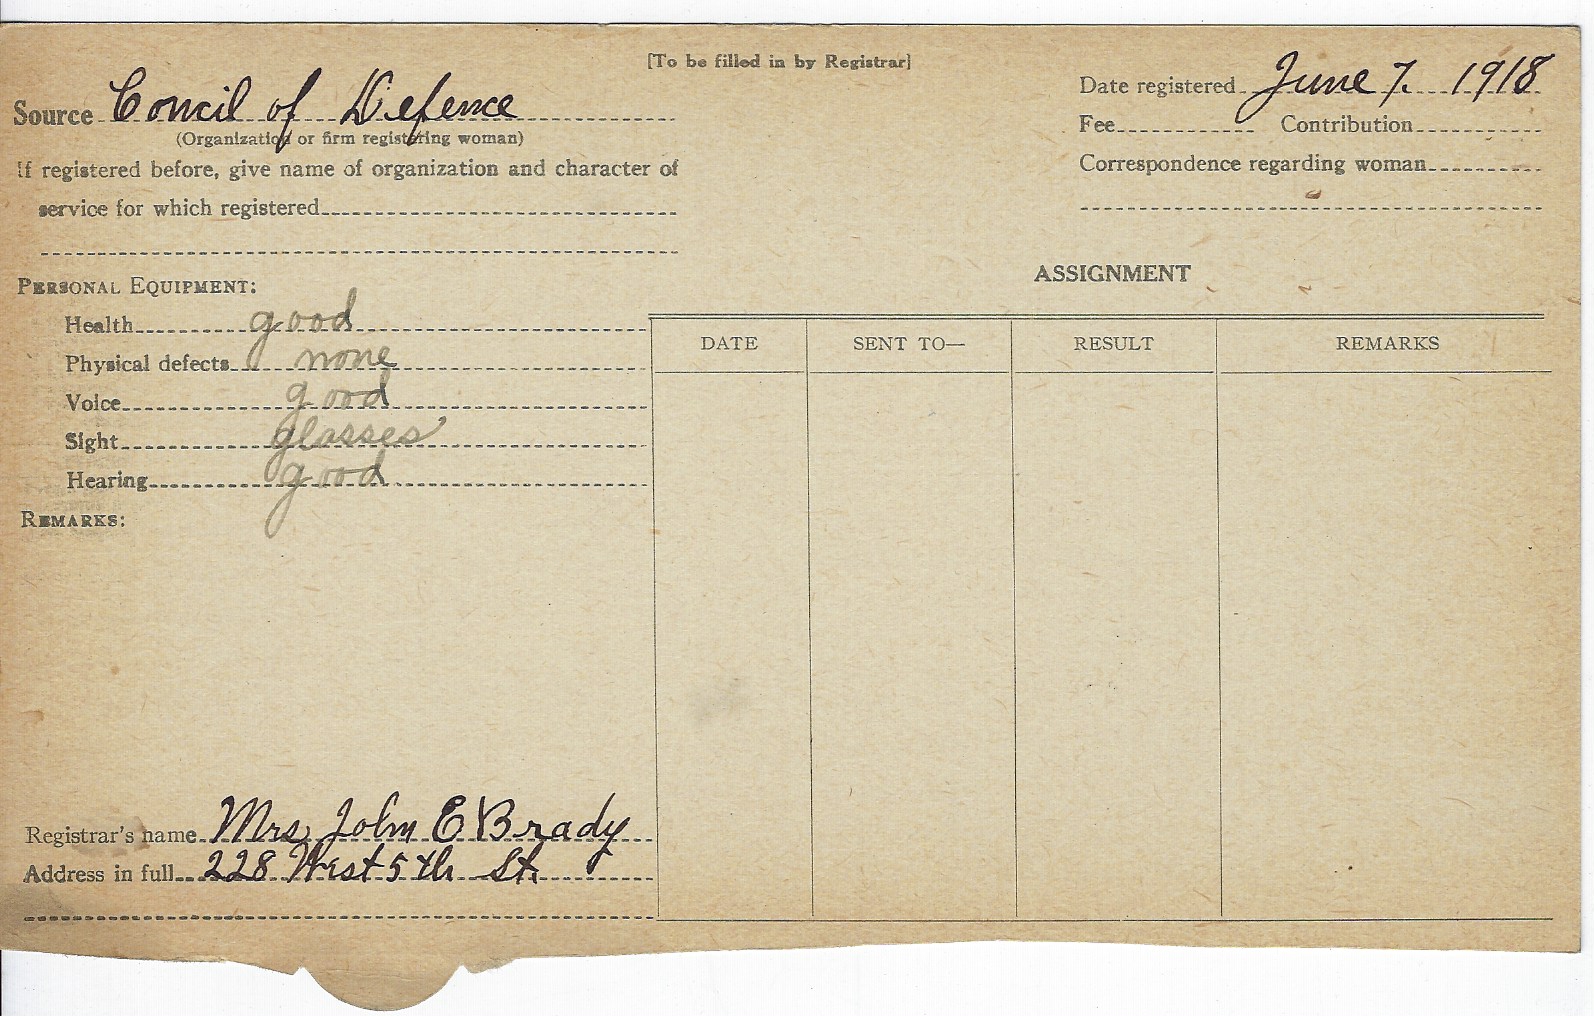 [To be filled in by Registrar]
Source Concil of Defence
(Organization or firm registering woman)
If registered before, give name of organization and character of
service for which registered
Date registered June 7. 1918
Fee Contribution
Correspondence regarding woman
PERSONAL EQUIPMENT:
Health good
Physical defects none
Voice good
Sight glasses
Hearing good
REMARKS:
ASSIGNMENT
DATE SENT TO— RESULT REMARKS
Registrar's name Mrs John E Brady
Address in full 228 West 5th St.